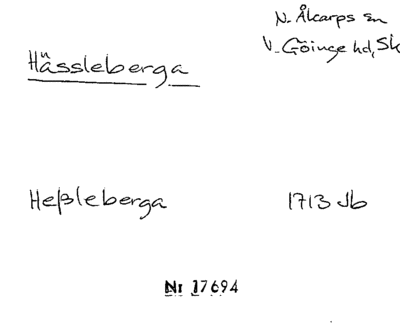 N. Åkarps sn
V. Göinge hd, Sk
Hässleberga
Heßleberga 1713 Jb
Nr 17694